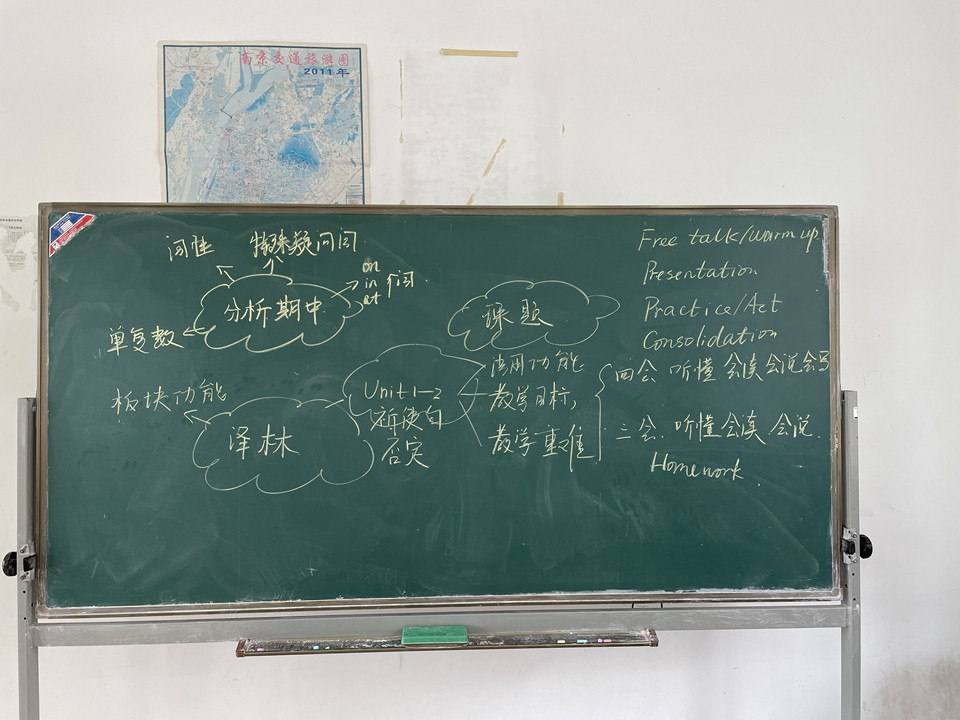 南京交通旅游图
2011年
词性 特殊疑问词
on
in 介词
at
分析期中
单复数
板块功能
译林
Unit 1-2
祈使句
否定
课题
语用功能
教学目标
教学重难
Free talk/warm up
Presentation
Practice/Act
Consolidation
四会 听懂 会读 会说 会写
三会 听懂 会读 会说
Homework